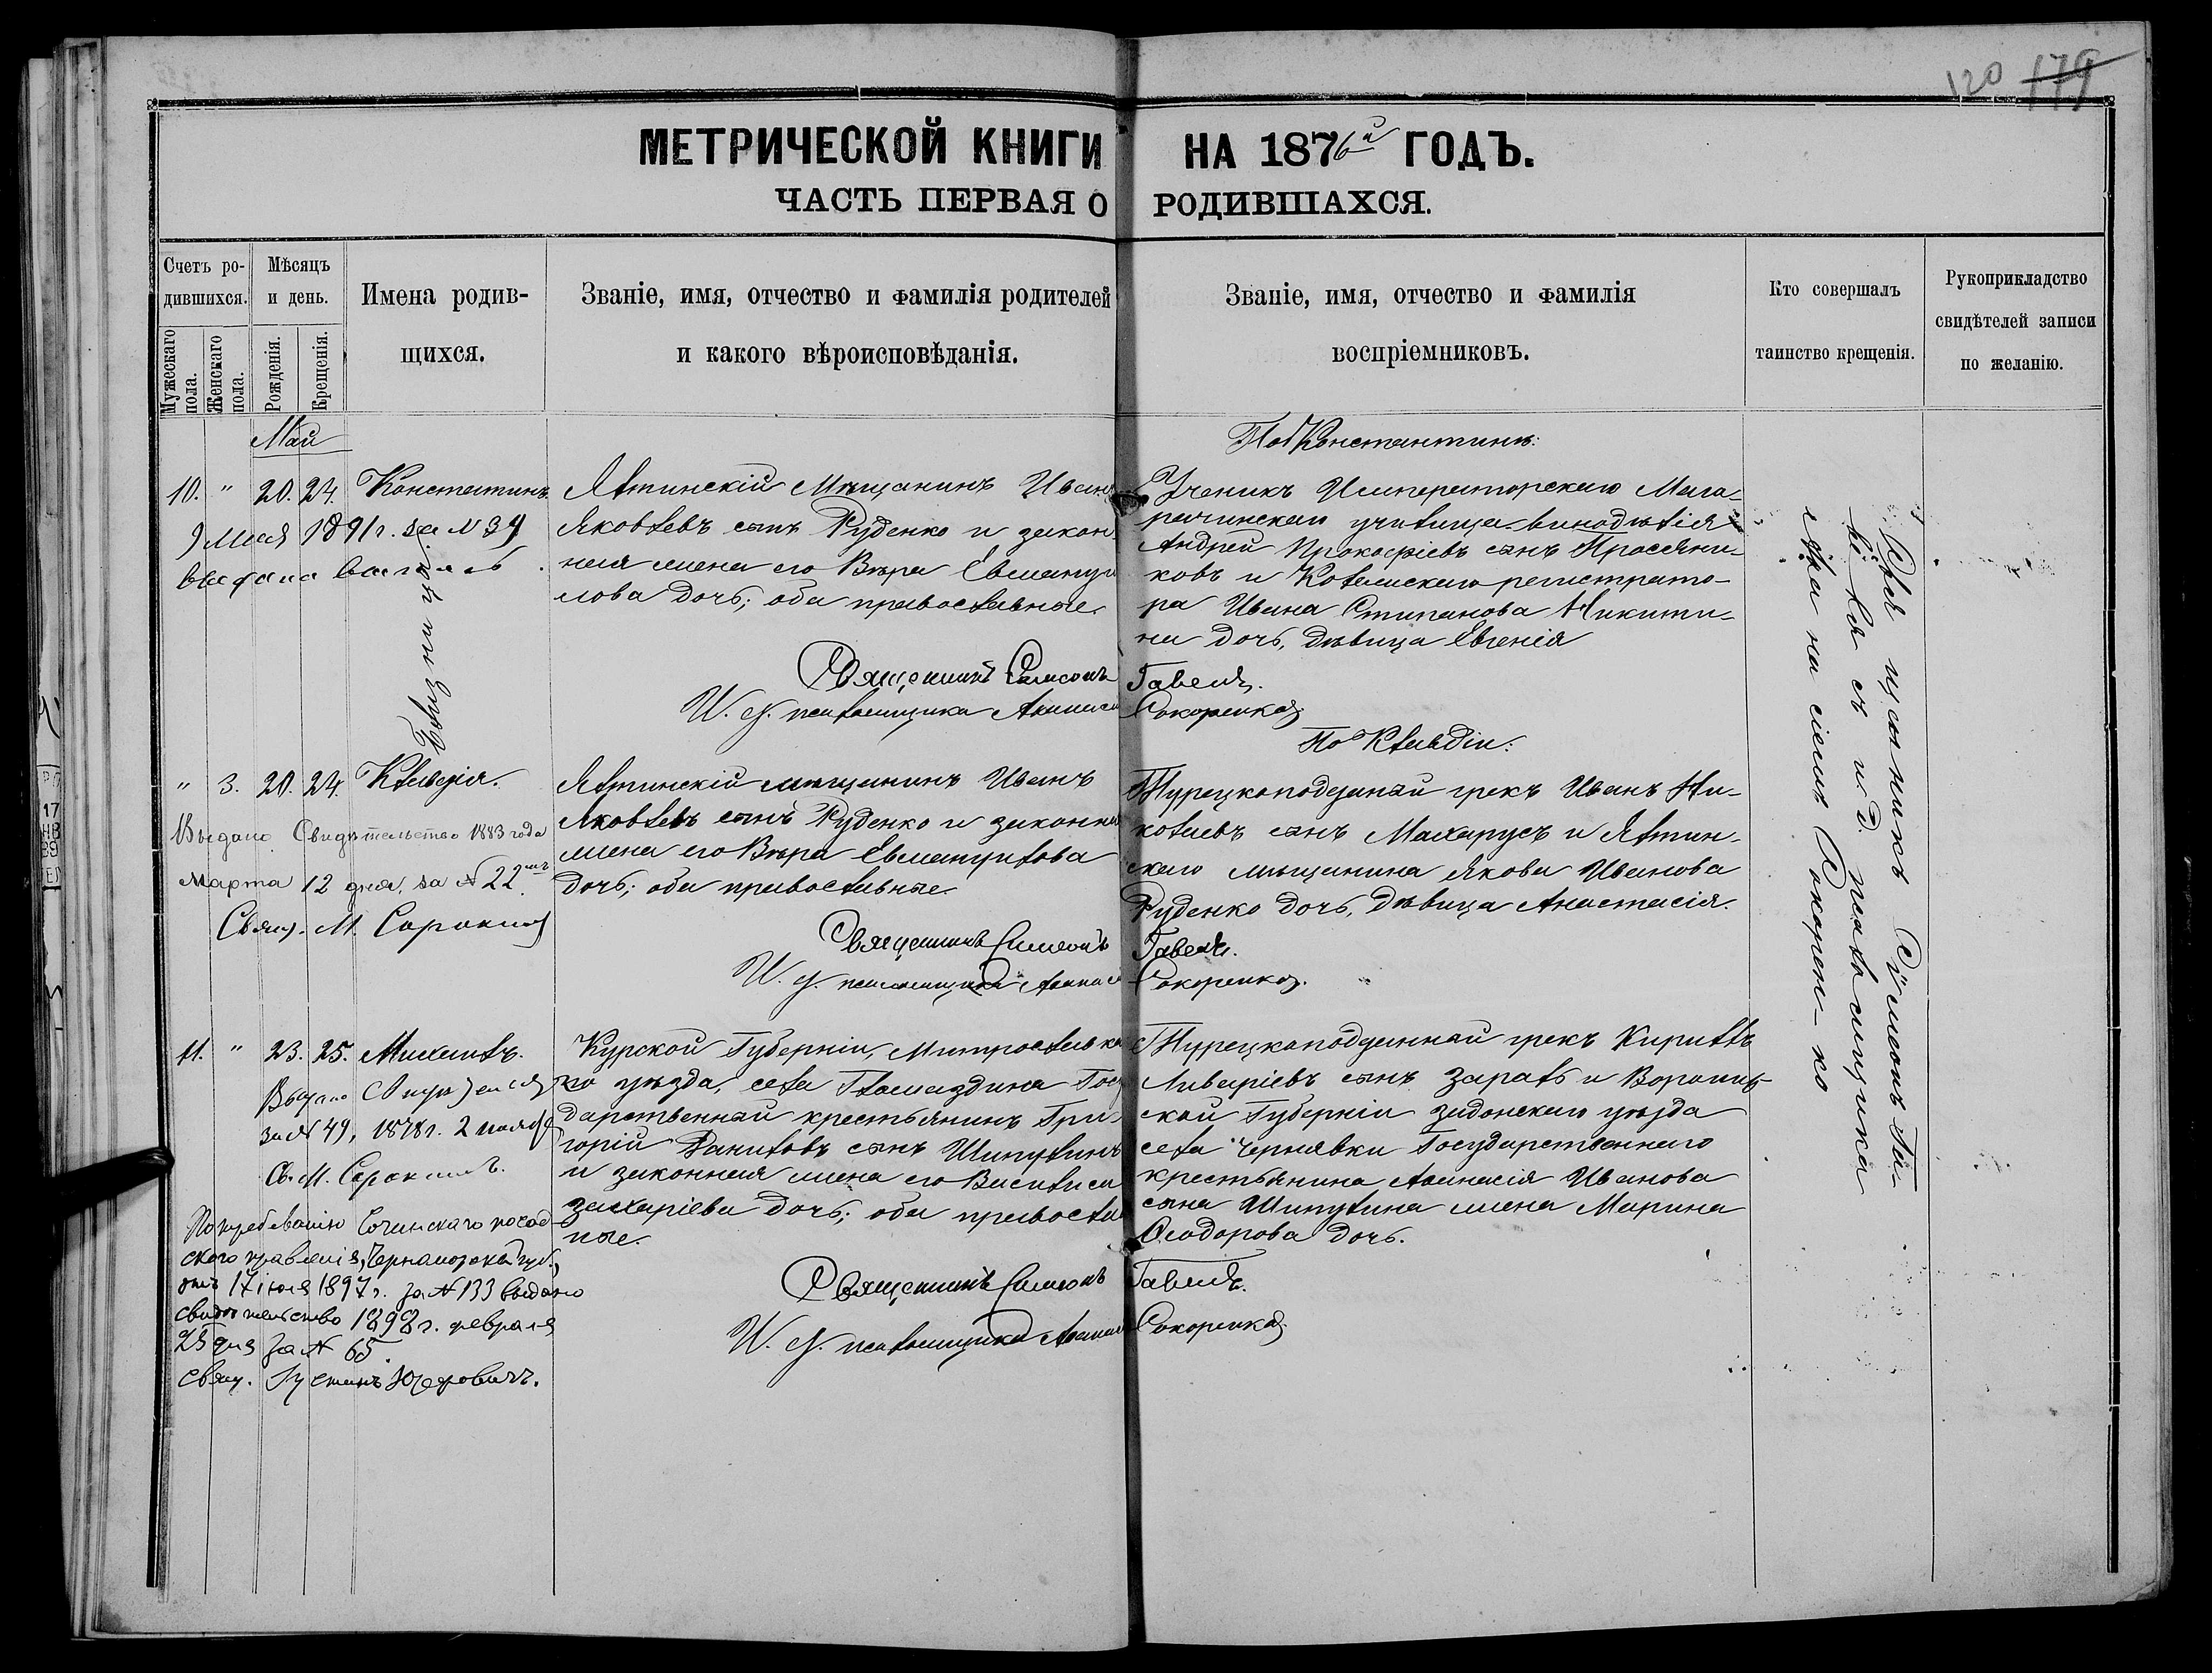 120 179
МЕТРИЧЕСКОЙ КНИГИ НА 1876й ГОДЪ.
ЧАСТЬ ПЕРВАЯ О РОДИВШАХСЯ.
Счетъ ро-
дившихся.
Мужескаго пола.
Женскаго пола.
Мѣсяцъ
и день.
Рожденія.
Крещенія.
Имена родив-
щихся.
Званіе, имя, отчество и фамилія родителей
и какого вѣроисповѣданія.
Званіе, имя, отчество и фамилія
воспріемниковъ.
Кто совершалъ
таинство крещенія.
Рукоприкладство
свидѣтелей записи
по желанію.
Май
10. " 20. 24. Константинъ
9 Мая 1891 г. за N 39
Близнецы.
Ялтинскій Мѣщанинъ Иванъ
Яковлевъ сынъ Руденко и закон
ная жена его Вѣра Евмануи
лова дочь; оба православные.
Священникъ Симеонъ Гавель.
И. д. псаломщика Афанасій Сокоренко
По Константинѣ:
Ученикъ Императорскаго Мага-
рачинскаго училища винодѣлія
Андрей Прокофіевъ сынъ Просяни-
ковъ и Колежскаго регистрато-
ра Ивана Стипанова Никити-
на дочь, дѣвица Евгенія
" 3. 20. 24. Клавдія.
Выдано Свидѣтельство 1883 года
марта 12 дня, за N 22мъ
Свящ. М. Сорокинъ
Ялтинскій мѣщанинъ Иванъ
Яковлевъ сынъ Руденко и законная
жена его Вѣра Евмануилова
дочь; оба православные.
Священникъ Симеонъ Гавель.
И. д. псаломщика Афанасій Сокоренко.
По Клавдіи:
Турецкоподданый грекъ Иванъ Ни-
колаевъ сынъ Махарусъ и Ялтин-
скаго мѣщанина Якова Иванова
Руденко дочь, дѣвица Анастасія.
11. " 23. 25. Михаилъ.
за N 49, 1878 г. 2 ноября
Св. М. Сорокинъ.
По требованію Сочинскаго посад-
скаго правленія, Черноморской губ.,
отъ 17 іюля 1897 г. за N 133 выдано
свидѣтельство 1898 г. февраля
23 дня за N 65.
Свящ.
Курской Губерніи, Митрославка
го уѣзда, села Гламаздина Госу
дарственный крестьянинъ Гри-
горій Даниловъ сынъ Шипулинъ
и законная жена его Василиса
Захаріева дочь; оба православ
ные.
Священникъ Симеонъ Гавель.
И. д. псаломщика Афанасій Сокоренко
Турецкоподданный грекъ Кириллъ
Ливеріевъ сынъ Заралъ и Воронеж-
ской Губерніи Задонскаго уѣзда
села Чернявки Государственнаго
крестьянина Афанасія Иванова
сына Шипулина жена Марина
Ѳеодорова дочь.
Священникъ Симеонъ Га-
вель съ и. д. псаломщика
Сокорен-ко